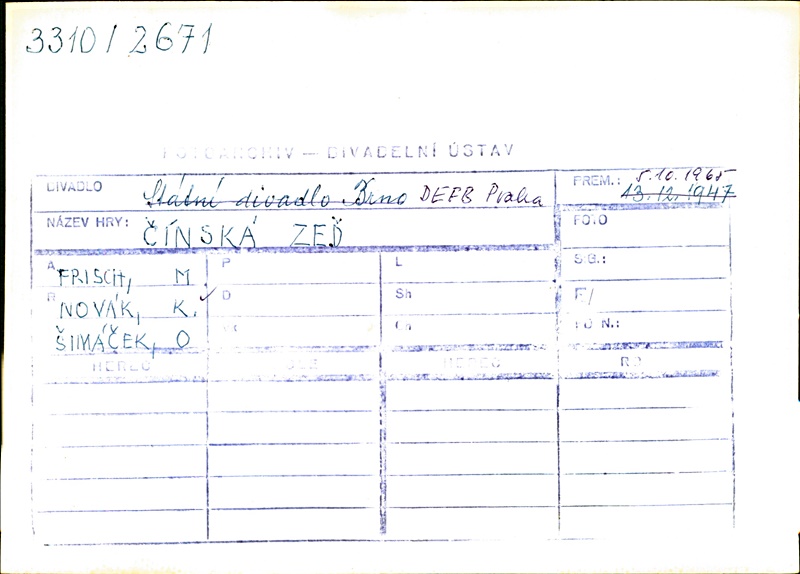 3310/2671
FOTOARCHIV — DIVADELNÍ ÚSTAV
DIVADLO Státní divadlo Brno DEFB Praha
PREM.: 5.10.1965
13.12.1947
NÁZEV HRY: ČÍNSKÁ ZEĎ
FOTO
A FRISCH, M
P
L
SG.:
R NOVÁK, K.
D
Sh
F/
ŠIMÁČEK, O
FO N.:
HEREC
HEREC